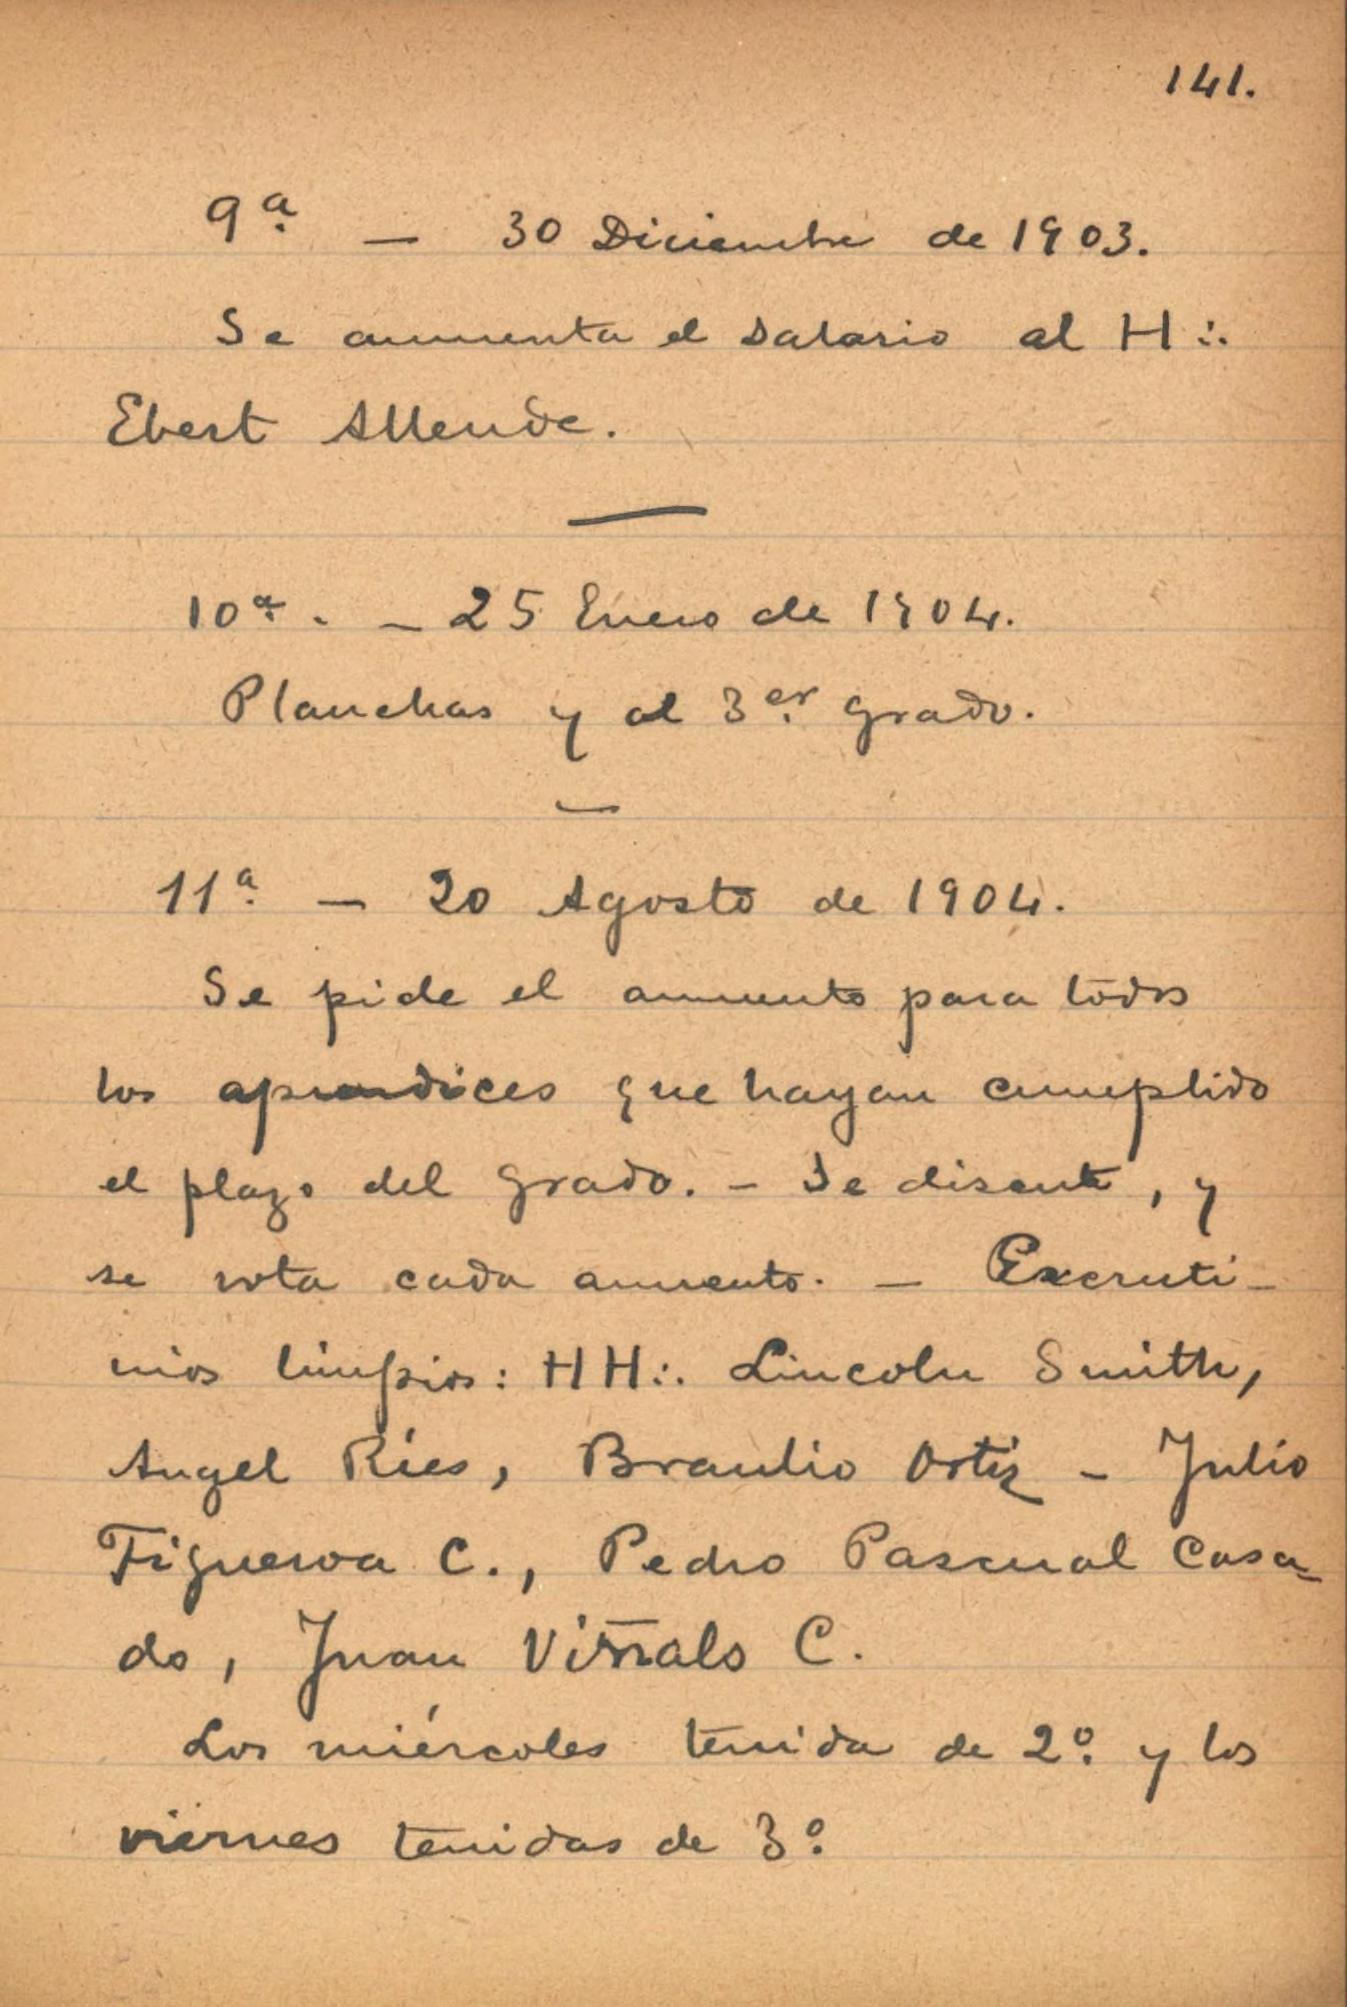 141.
9ª. — 30 Diciembre de 1903.
Se aumenta el salario al H∴
Ebert Allende.
10ª. — 25 Enero de 1904.
Planchas y al 3er. grado.
11ª. — 20 Agosto de 1904.
Se pide el aumento para todos
los aprendices que hayan cumplido
el plazo del grado. — Se discute, y
se vota cada aumento. — Excruti-
nios limpios: HH∴ Lincoln Smith,
Angel Ríes, Braulio Ortiz — Julio
Figueroa C., Pedro Pascual Casa-
do, Juan Viñals C.
Los miércoles tenida de 2º. y los
viernes tenidas de 3º.